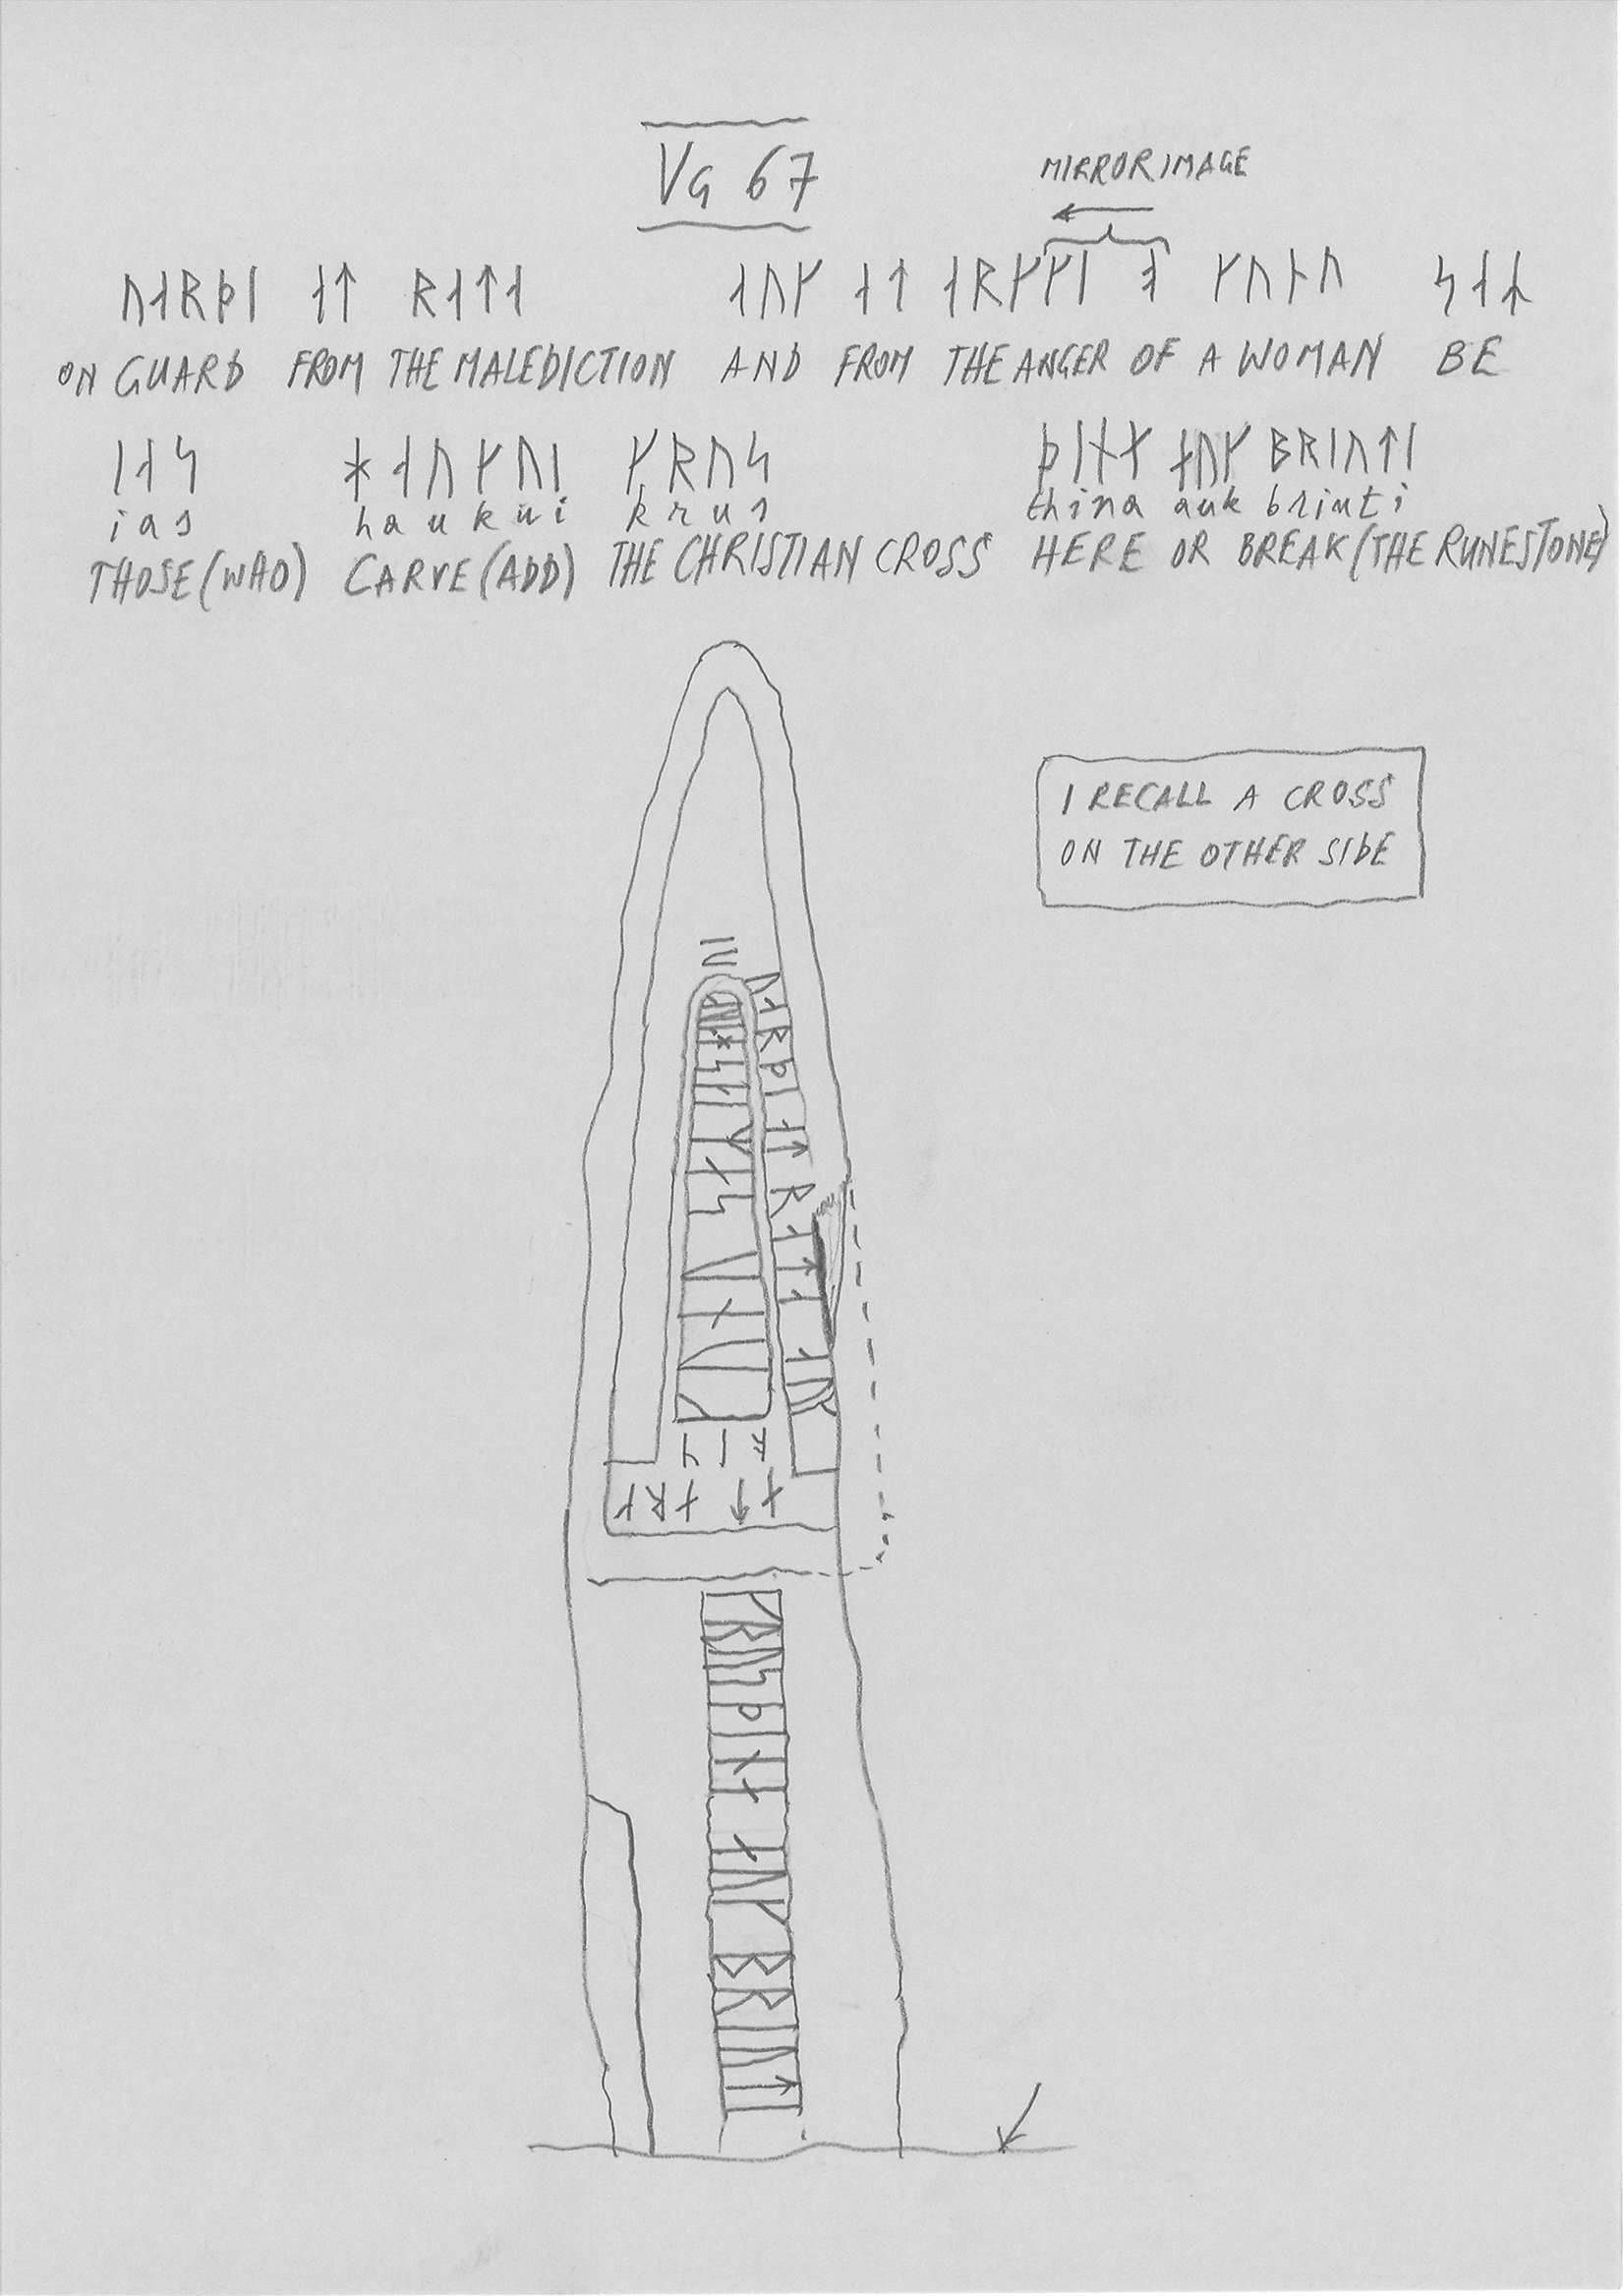 VG 67
MIRRORIMAGE
ᚢᛆᚱᚦᛁ ᛆᛏ ᚱᛆᛏᛆ ᛆᚢᚴ ᛆᛏ ᛆᚱᚴᚴᛁ ᚴᚢᚿᚢ ᛋᛆ
ON GUARD FROM THE MALEDICTION AND FROM THE ANGER OF A WOMAN BE
ᛁᛆᛋ ᚼᛆᚢᚴᚢᛁ ᚴᚱᚢᛋ ᚦᛁᚾᛅ ᛅᚢᚴ ᛒᚱᛁᚢᛏᛁ
ias haukui krus thina auk briuti
THOSE (WHO) CARVE (ADD) THE CHRISTIAN CROSS HERE OR BREAK (THE RUNESTONE)
I RECALL A CROSS
ON THE OTHER SIDE
ᚢᛆᚱᚦᛁ ᛆᛏ ᚱᛆᛏᛆ ᛆᚢᚴ
ᚴᚱᚢᛋᚦᛁᚾᛅ ᛅᚢᚴ ᛒᚱᛁᚢᛏᛁ